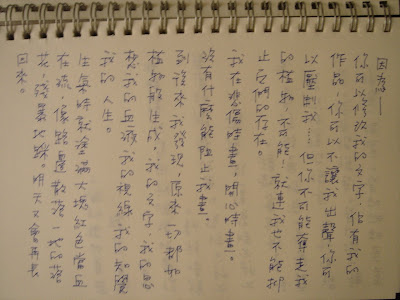 因為——
你可以修改我的文字，佔有我的
作品，你可以不讓我出聲，你可
以壓制我…但你不可能奪走我
的植物，不可能！就連我也不能抑
止它們的存在。
我在悲傷時畫，開心時畫。
沒有什麼能阻止我畫。
到後來，我發現，原來一切都如
植物般生成，我的文字，我的思
想，我的血液，我的視線，我的知覺
我的人生。
生氣時就塗滿大塊紅色當血
在流，像路邊散落一地的落
花，發暴地踩。明天又會再長
回來。